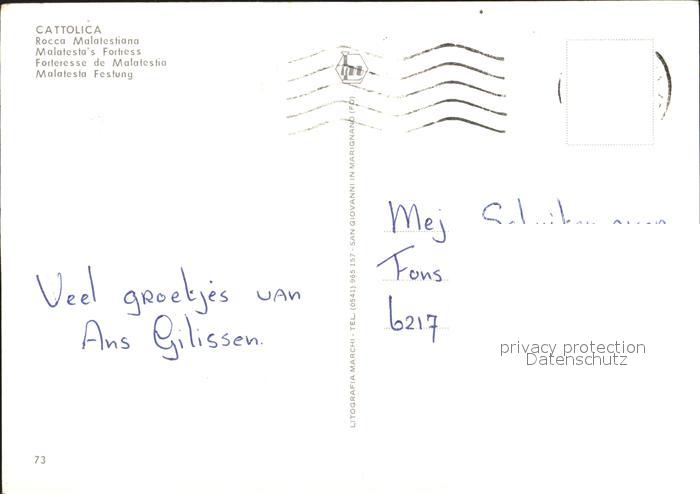 CATTOLICA
Rocca Malatestiana
Malatesta's Fortress
Forteresse de Malatestia
Malatesta Festung
LITOGRAFIA MARCHI - TEL. (0541) 965 157 - SAN GIOVANNI IN MARIGNANO (FO)
Veel groetjes van
Ans Gilissen.
Mej
Fons
6217
privacy protection
Datenschutz
73